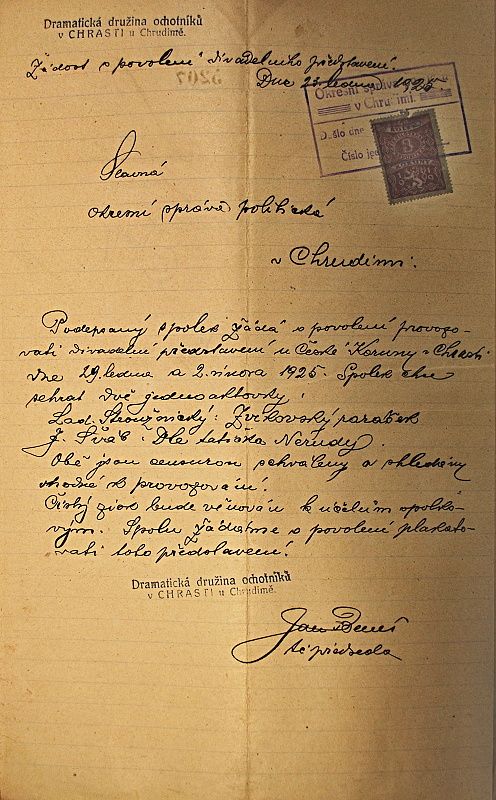 Dramatická družina ochotníků
v CHRASTI u Chrudimě.
Žádost o povolení divadelního představení.
Dne 23. ledna 1925
Okresní správa
v Chrudimi.
Došlo dne
Číslo jed
3
Slavná
okresní správa politická
v Chrudimi.
Podepsaný spolek žádá o povolení provozo-
vati divadelní představení u České Koruny v Chrasti
dne 29. ledna a 2. února 1925. Spolek chce
sehrát dvě jednoaktovky:
Lad. Stroupežnický: Zvíkovský rarášek
J. Šváb: Dle tatíčka Nerudy.
Obě jsou censurou schváleny a shledány
vhodné k provozování.
Čistý zisk bude věnován k účelům spolko-
vým. Spolu žádáme o povolení plakato-
vati toho představení.
Dramatická družina ochotníků
v CHRASTI u Chrudimě.
Jan Beneš
t.č. předseda